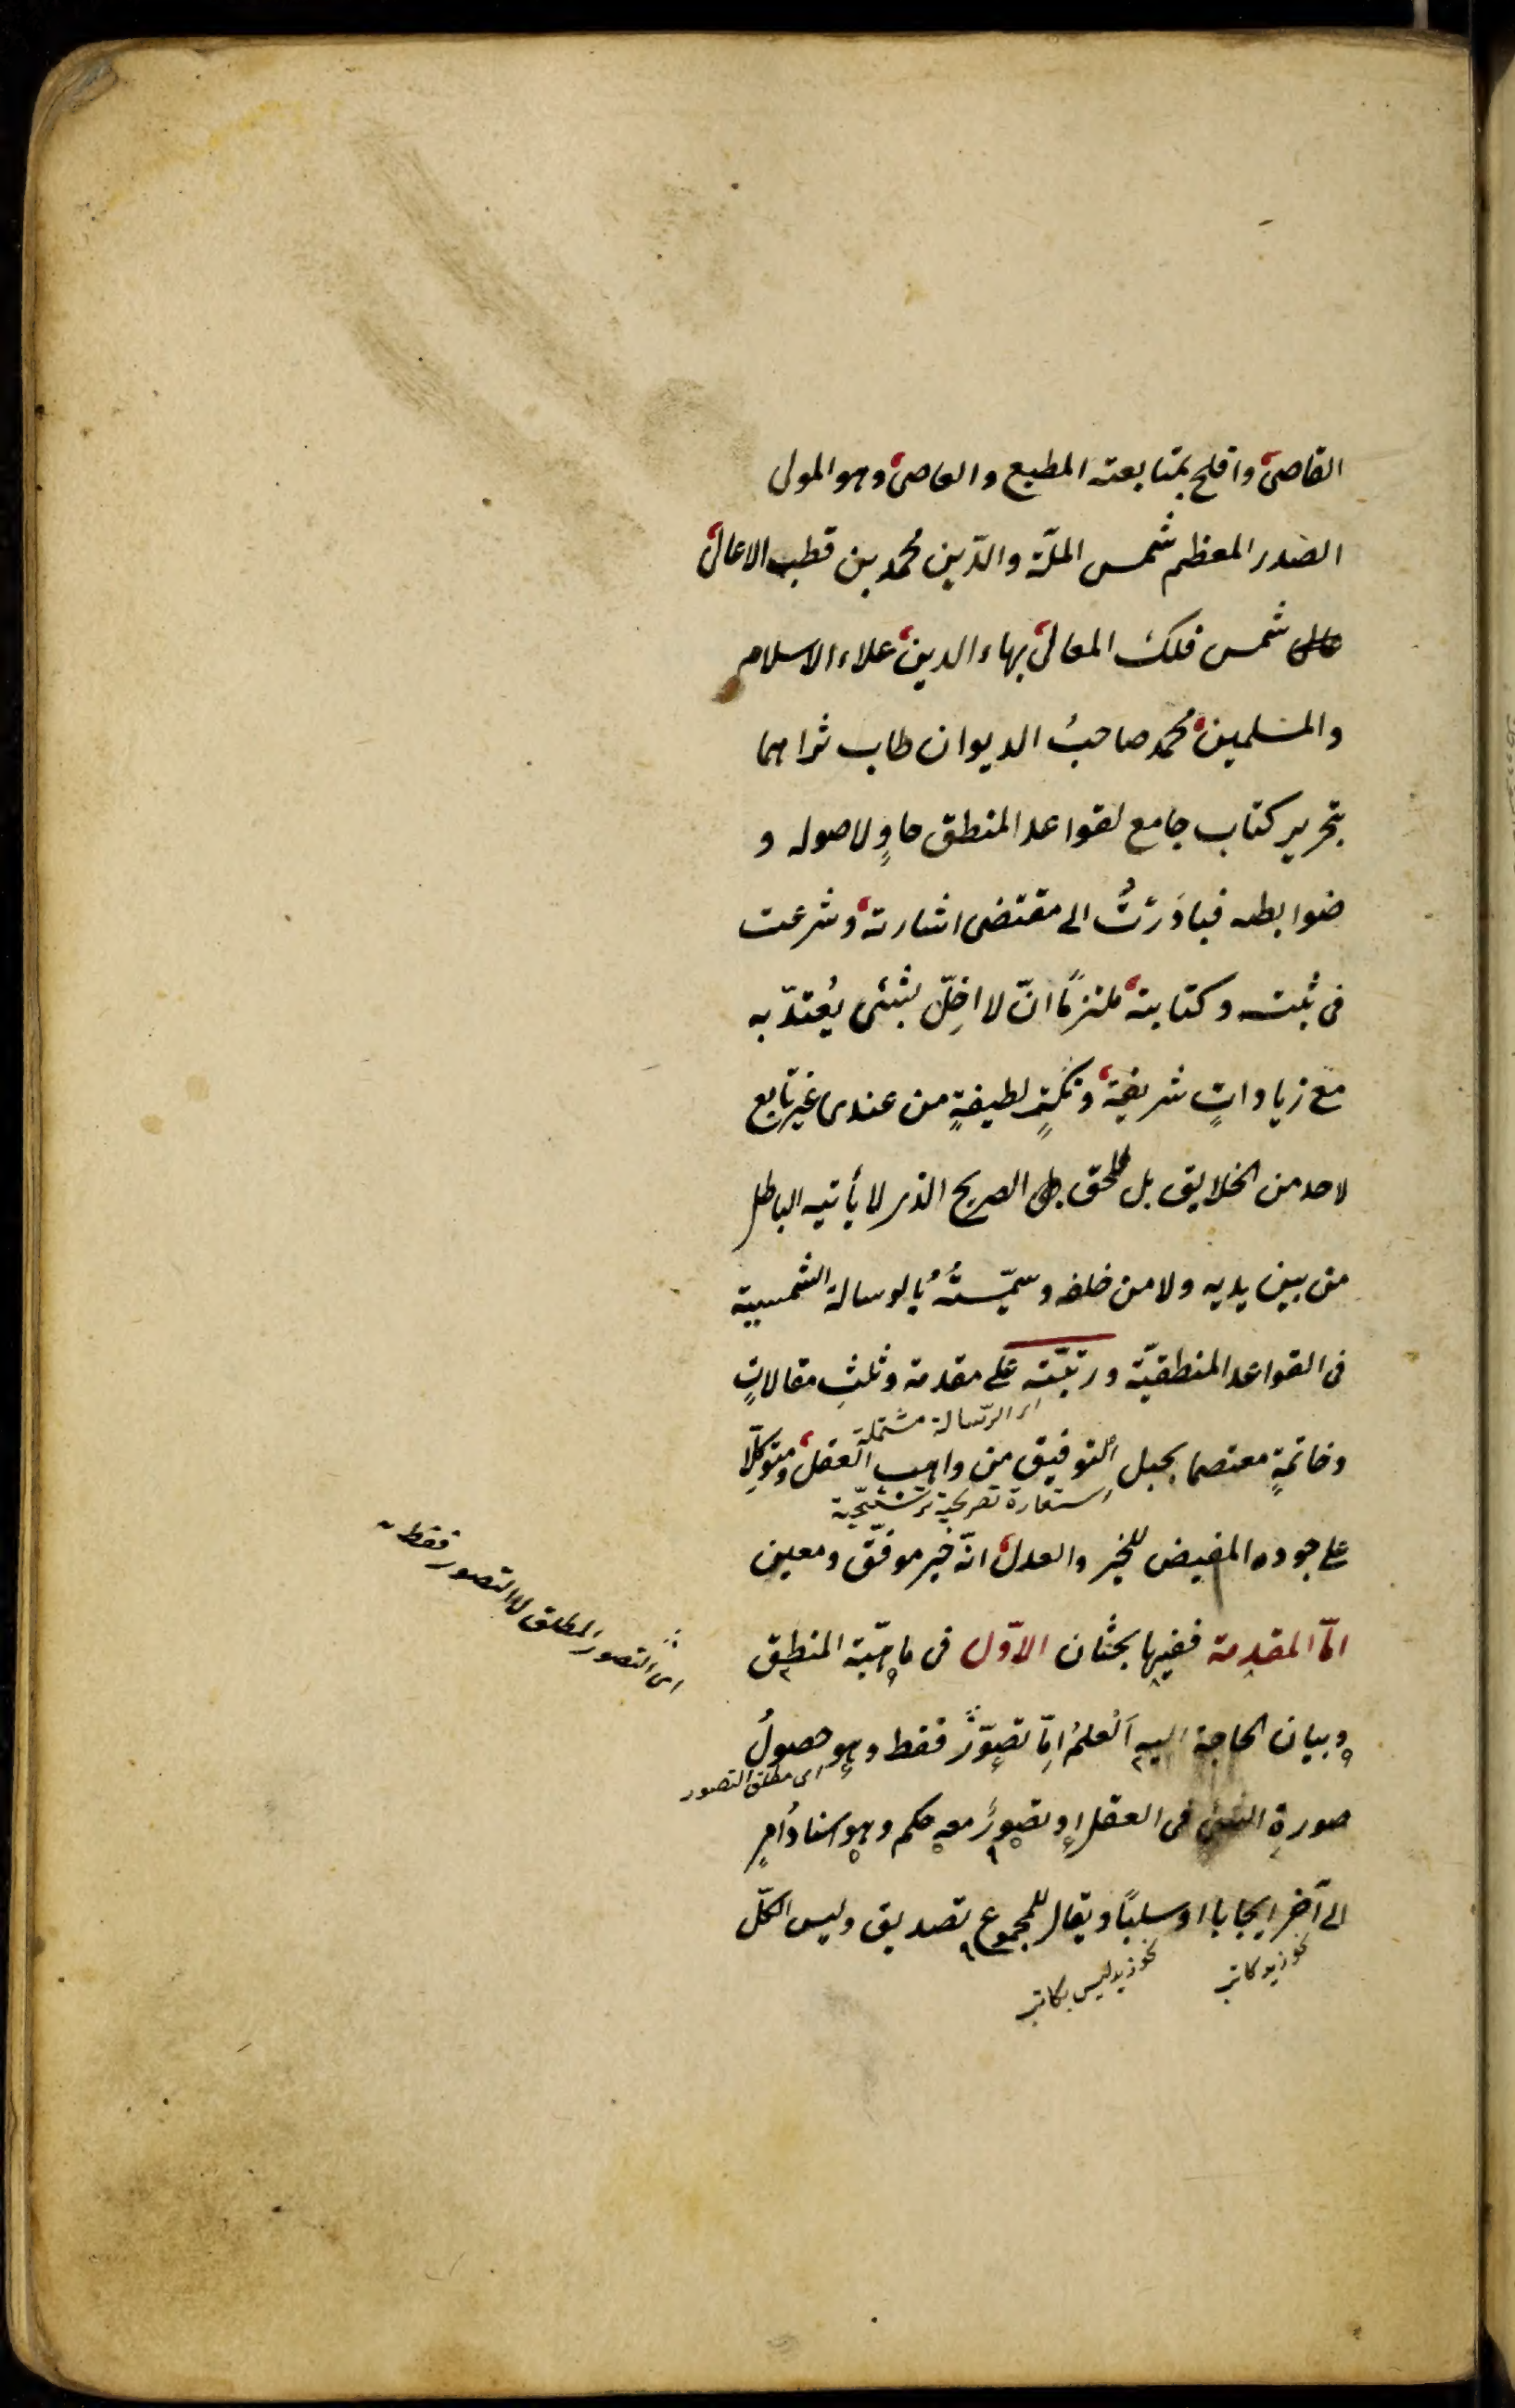 القاصى وافلح بمتابعته المطيع والعاصى وهو المولى
الصدر المعظم شمس الملّة والدّين محمد بن قطب الاعالى
شمس فلك المعالى بهاء الدين علاء الاسلام
والمسلمين محمد صاحبُ الديوان طاب ثراهما
بتحرير كتاب جامع لقواعد المنطق حاوٍ لاصوله و
ضوابطه فبادَرْتُ الى مقتضى اشارته وشرعت
فى ثبته وكتابته ملتزمًا انّ لا اخِلّ بشئى يُعتدّ به
مع زياداتٍ شريفةٍ ونكتٍ لطيفةٍ من عندى غير تابع
لاحد من الخلايق بل للحق الصريح الذى لا يأتيه الباطل
من بين يديه ولا من خلفه وسمّيتُهُ بالرسالة الشمسية
فى القواعد المنطقيّة ورتبّته على مقدمة وثلثِ مقالاتٍ
اى الرّسالة مشتملة
وخاتمةٍ معتصما بحبل التوفيق من واهب العقل ومتوكّلا
استعارة تصريحية ترشيحية
على جوده المفيض للخير والعدل انّه خير موفّق ومعين
امّا المقدمة ففيها بحثان الاوّل فى ماهيّة المنطق
اى التصور المطلق لا التصور فقط
وبيان الحاجة اليه اَلعلمُ اِمّا تصوّرٌ فقط وهو حصولُ
اى مطلق التصور
صورةِ الشئ فى العقل او تصورٌ معه حكم وهو اسنادُ امرٍ
الى آخر ايجابا او سلبًا ويقال للمجموع تصديق وليس الكلّ
نحو زيد كاتب
نحو زيد ليس بكاتب